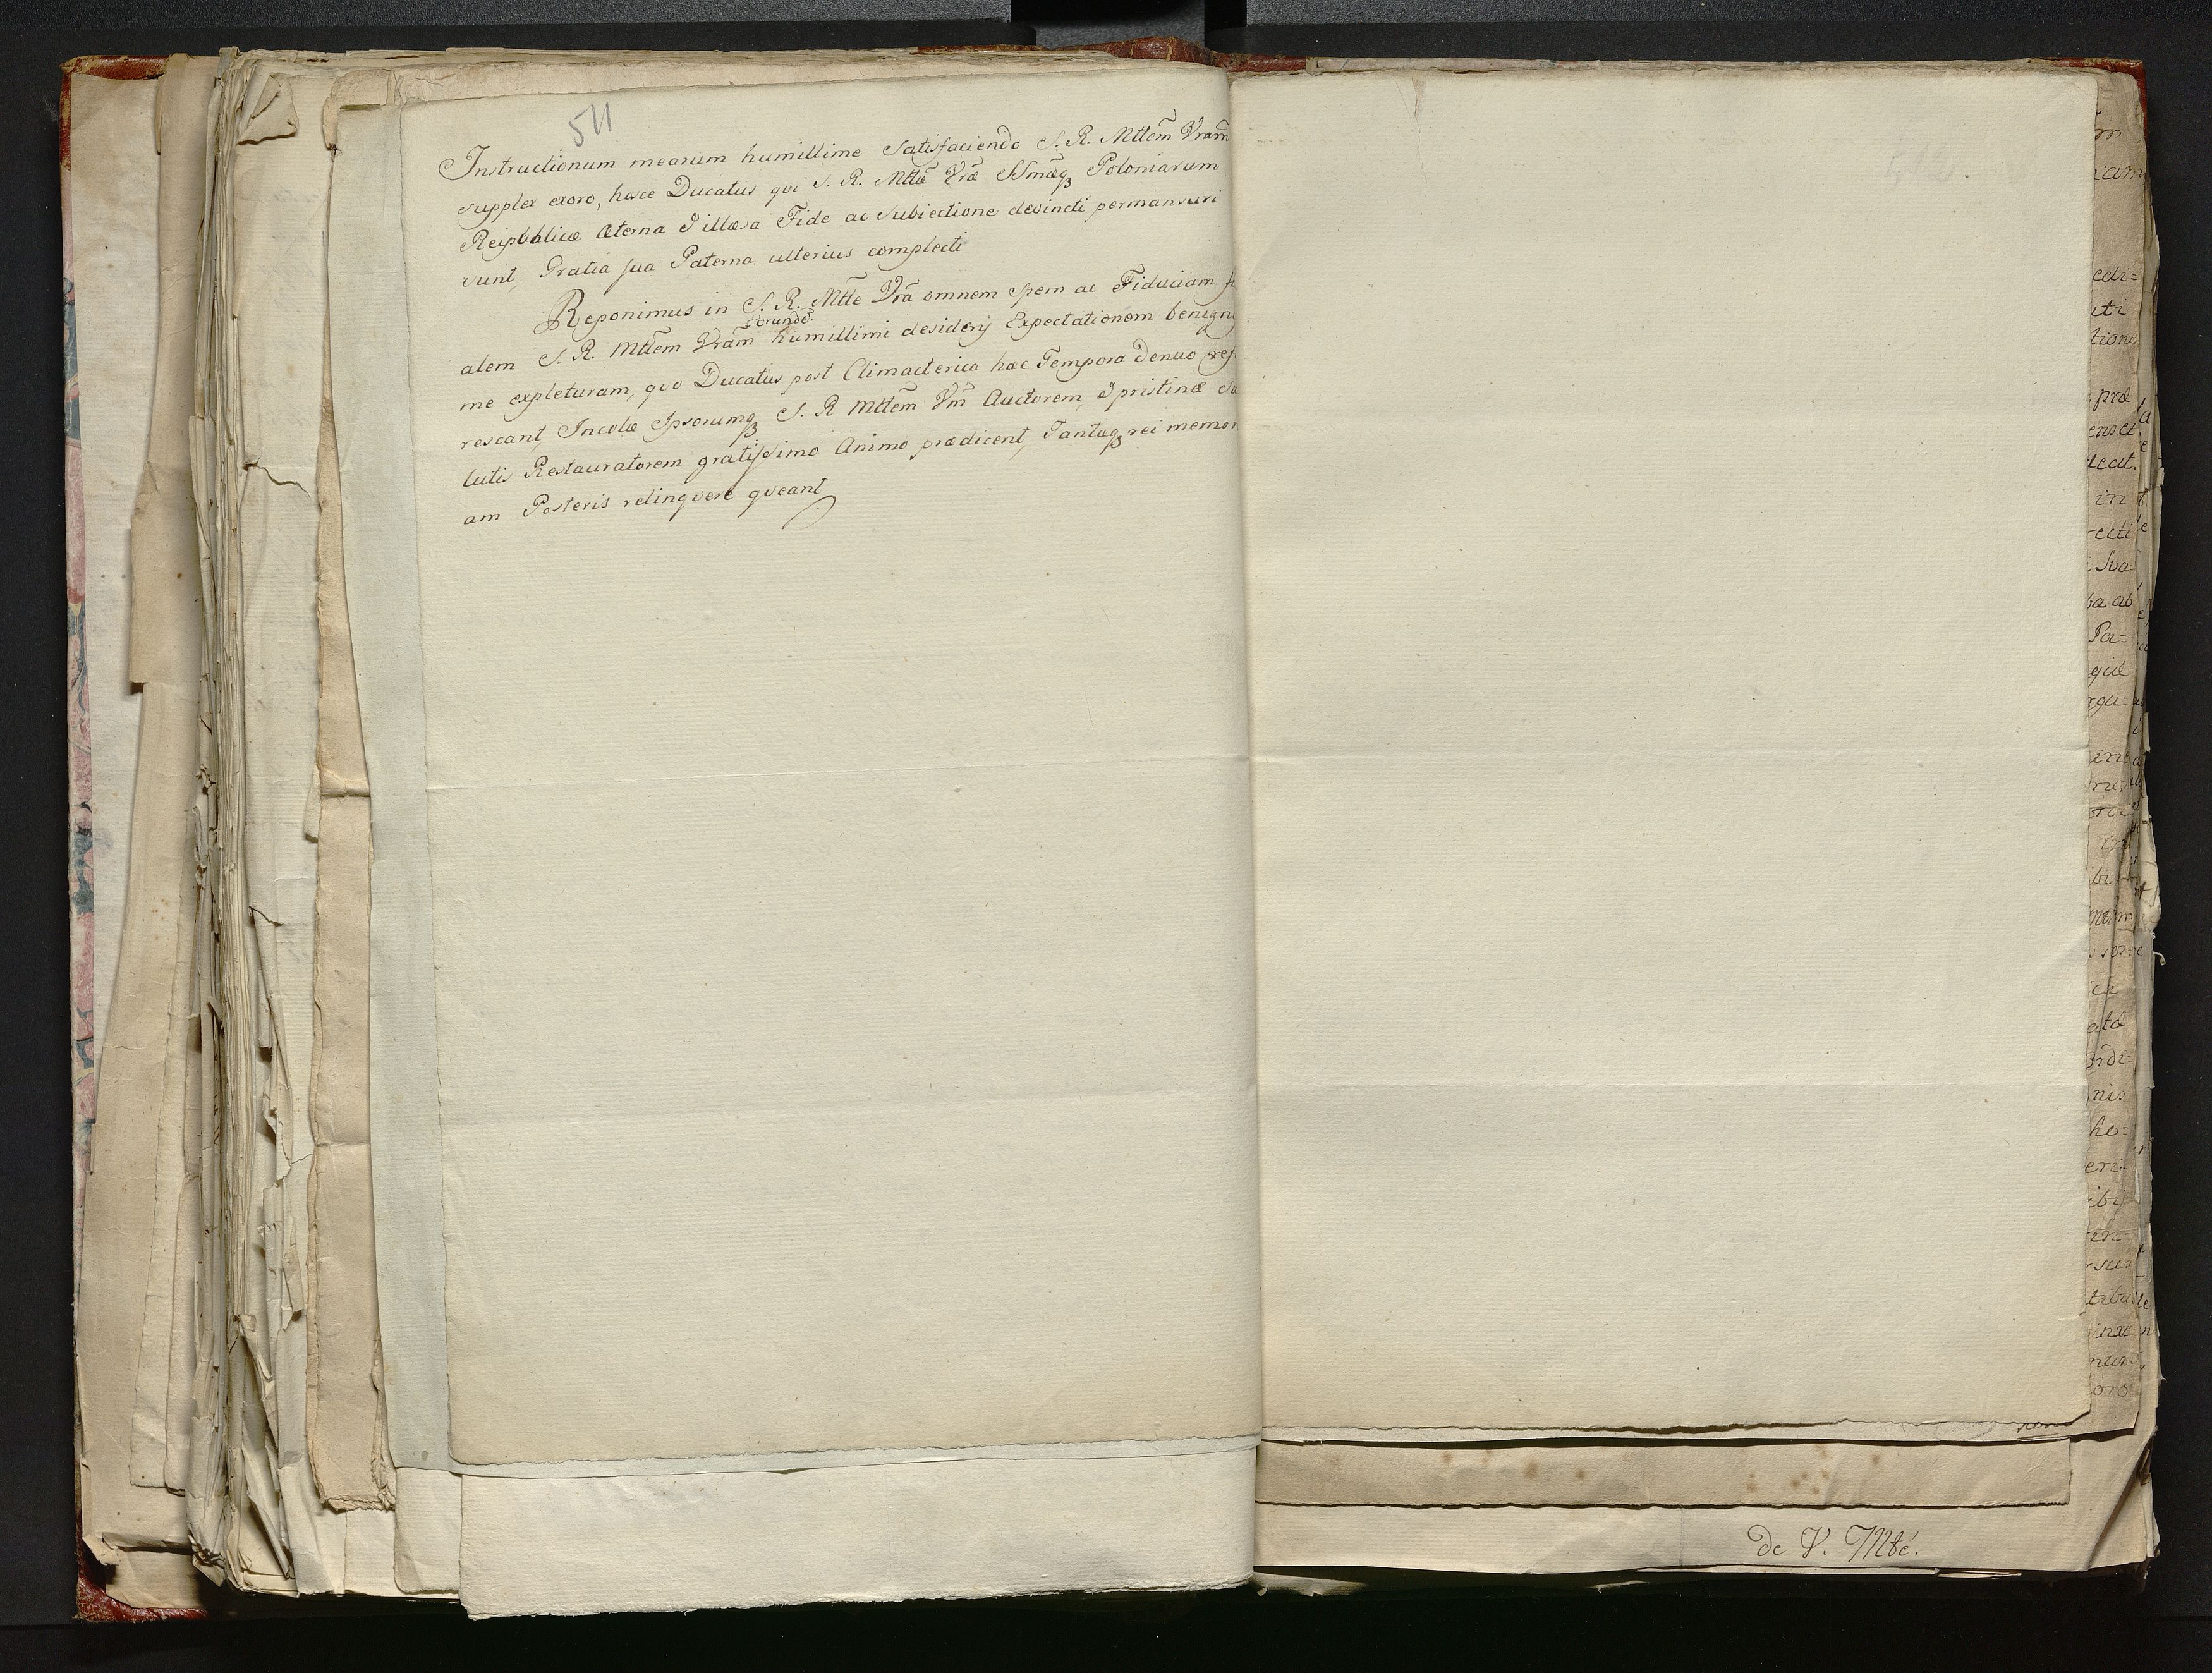 511
Instructionum mearum humillime Satisfaciendo S. R. Mttem̃ Vram̃
supplex exoro, hasce Ducatus qvi S. R. Mttæ̃ Vræ̃ SSmæ̃qȝ Poloniarum
Reipublicæ Æterna & illæsa Fide ac Subiectione devincti permansuri
sunt, Gratia sua Paterna ulterius complecti
Reponimus in S. R. Mtte Vrã omnem Spem ac Fiduciam
eorundẽ
alem S. R. Mttem̃ Vram̃ humillimi desiderÿ Expectationem benigni
me expleturam, qvo Ducatus post Climacterica hac Tempora denuo
rescant, Incolæ Ipsorumqȝ S. R Mttem̃ Vm̃ Auctorem, & pristinæ Sa
lutis Restauratorem gratissimo Animo prædicent, Tantæqȝ rei memori
am Posteris relinqvere qveant
512.
de V. Mté.